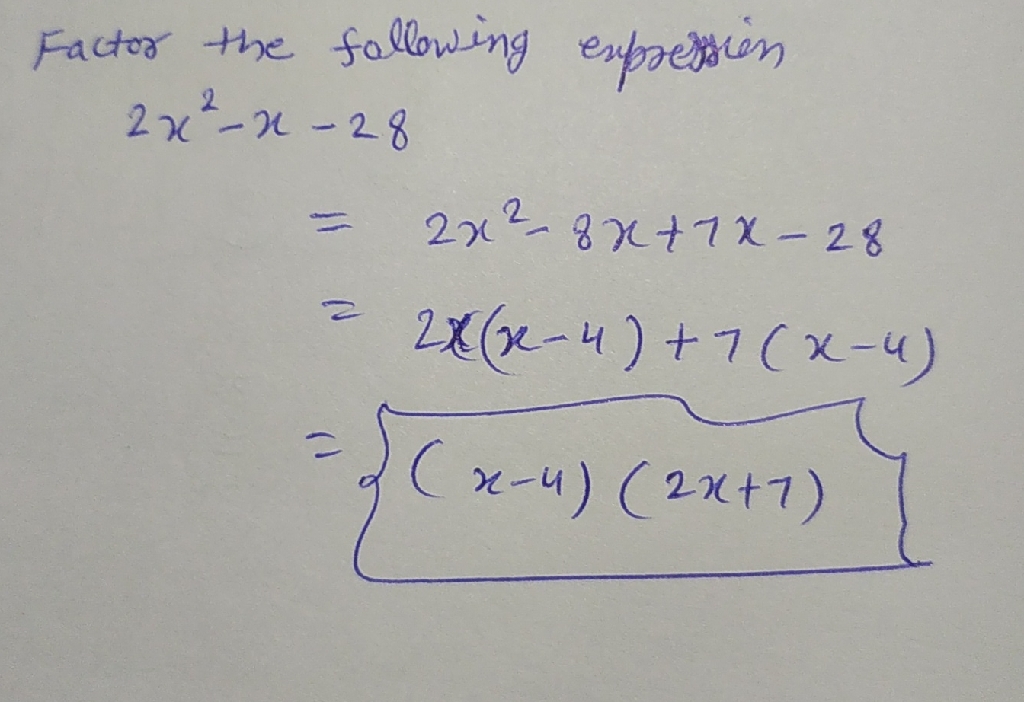 Factor the following expression
2x²-x-28
= 2x²-8x+7x-28
= 2x(x-4)+7(x-4)
= (x-4)(2x+7)